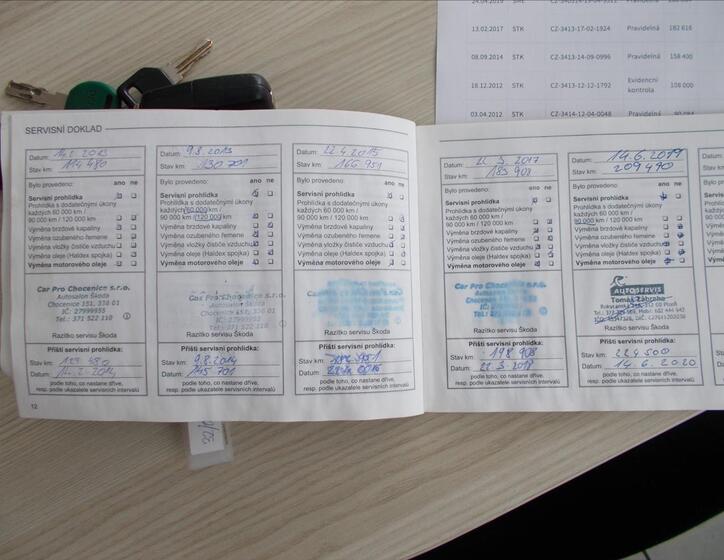 SERVISNÍ DOKLAD
Datum: 14.2.2013
Stav km: 114 480
Bylo provedeno: ano ne
Servisní prohlídka
Prohlídka s dodatečnými úkony
každých 60 000 km/
90 000 km / 120 000 km
Výměna brzdové kapaliny
Výměna ozubeného řemene
Výměna vložky čističe vzduchu
Výměna oleje (Haldex spojka)
Výměna motorového oleje
Car Pro Chocenice s.r.o.
Autosalon Škoda
Chocenice 151, 336 01
IČ: 27999955
Tel.: 371 522 110
Razítko servisu Škoda
Příští servisní prohlídka:
Stav km:
Datum: 14.2.2014
podle toho, co nastane dříve,
resp. podle ukazatele servisních intervalů
12
Datum: 9.8.2013
Stav km: 130 701
Bylo provedeno: ano ne
Servisní prohlídka
Prohlídka s dodatečnými úkony
každých 60 000 km/
90 000 km / 120 000 km
Výměna brzdové kapaliny
Výměna ozubeného řemene
Výměna vložky čističe vzduchu
Výměna oleje (Haldex spojka)
Výměna motorového oleje
Car Pro Chocenice s.r.o.
Autosalon Škoda
Chocenice 151, 336 01
IČ: 27999955
Tel.: 371 522 110
Razítko servisu Škoda
Příští servisní prohlídka:
Stav km: 9.8.2014
Datum: 145 701
podle toho, co nastane dříve,
resp. podle ukazatele servisních intervalů
Datum: 22.4.2015
Stav km: 166 951
Bylo provedeno: ano ne
Servisní prohlídka
Prohlídka s dodatečnými úkony
každých 60 000 km/
90 000 km / 120 000 km
Výměna brzdové kapaliny
Výměna ozubeného řemene
Výměna vložky čističe vzduchu
Výměna oleje (Haldex spojka)
Výměna motorového oleje
Razítko servisu Škoda
Příští servisní prohlídka:
Stav km:
Datum:
podle toho, co nastane dříve,
resp. podle ukazatele servisních intervalů
Datum: 3. 2017
Stav km: 183 908
Bylo provedeno: ano ne
Servisní prohlídka
Prohlídka s dodatečnými úkony
každých 60 000 km/
90 000 km / 120 000 km
Výměna brzdové kapaliny
Výměna ozubeného řemene
Výměna vložky čističe vzduchu
Výměna oleje (Haldex spojka)
Výměna motorového oleje
Car Pro Chocenice s.r.o.
Razítko servisu Škoda
Příští servisní prohlídka:
Stav km: 198 908
Datum: 3. 2018
podle toho, co nastane dříve,
resp. podle ukazatele servisních intervalů
Datum: 14.6.2019
Stav km: 209 490
Bylo provedeno: ano ne
Servisní prohlídka
Prohlídka s dodatečnými úkony
každých 60 000 km/
90 000 km / 120 000 km
Výměna brzdové kapaliny
Výměna ozubeného řemene
Výměna vložky čističe vzduchu
Výměna oleje (Haldex spojka)
Výměna motorového oleje
AUTOSERVIS
Tomáš Zábraha
Razítko servisu Škoda
Příští servisní prohlídka:
Stav km: 224 500
Datum: 14.6.2020
podle toho, co nastane dříve,
resp. podle ukazatele servisních intervalů
13.02.2017 STK CZ-3413-17-02-1924 Pravidelná 182 616
08.09.2014 STK CZ-3413-14-09-0996 Pravidelná 158 400
18.12.2012 STK CZ-3413-12-12-1792 Evidenční kontrola 108 000
03.04.2012 STK CZ-3414-12-04-0048 Pravidelná